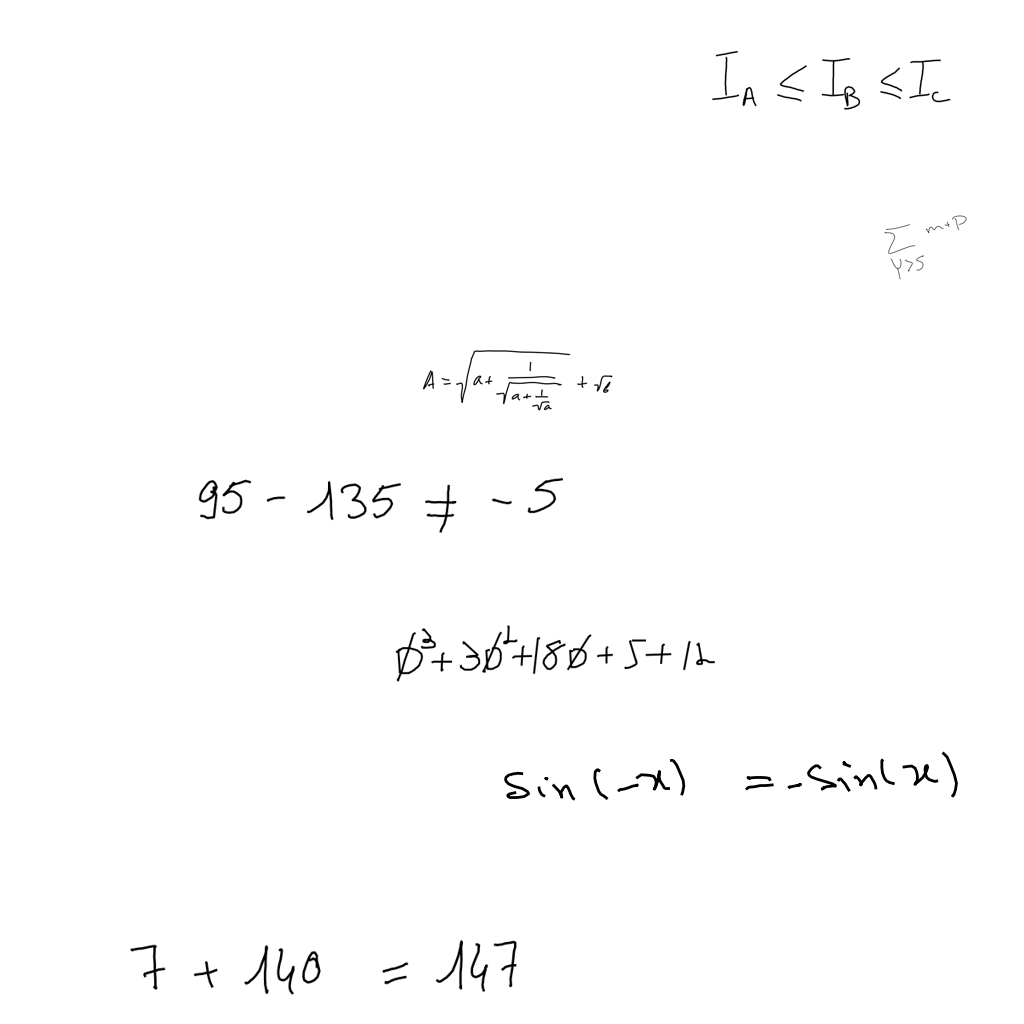 I_A ≤ I_B ≤ I_C
∑_{Y>5}^{m+P}
A = √(a + 1/√(a + 1/√a)) + √b
95 - 135 ≠ -5
∅³ + 3∅² + 18∅ + 5 + 12
sin(-x) = -sin(x)
7 + 140 = 147